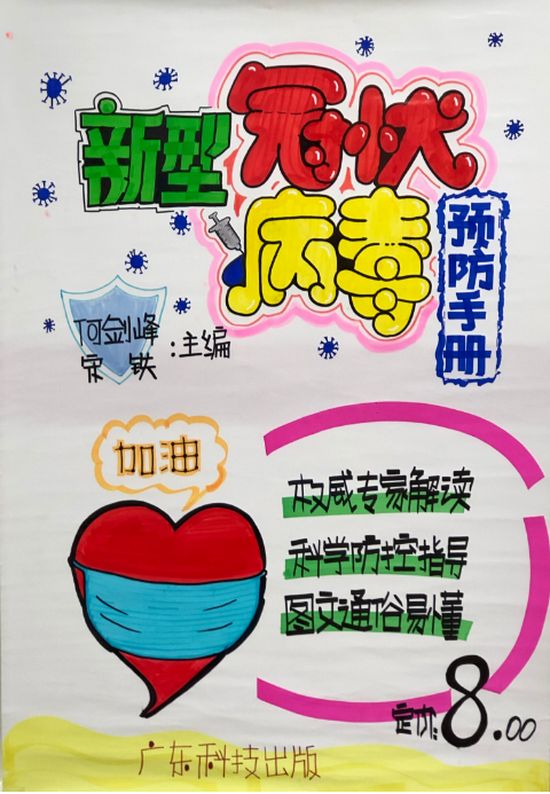 新型冠状
病毒
预防手册
何剑峰
宋铁
:主编
加油
权威专家解读
科学防控指导
图文通俗易懂
定价:8.00
广东科技出版